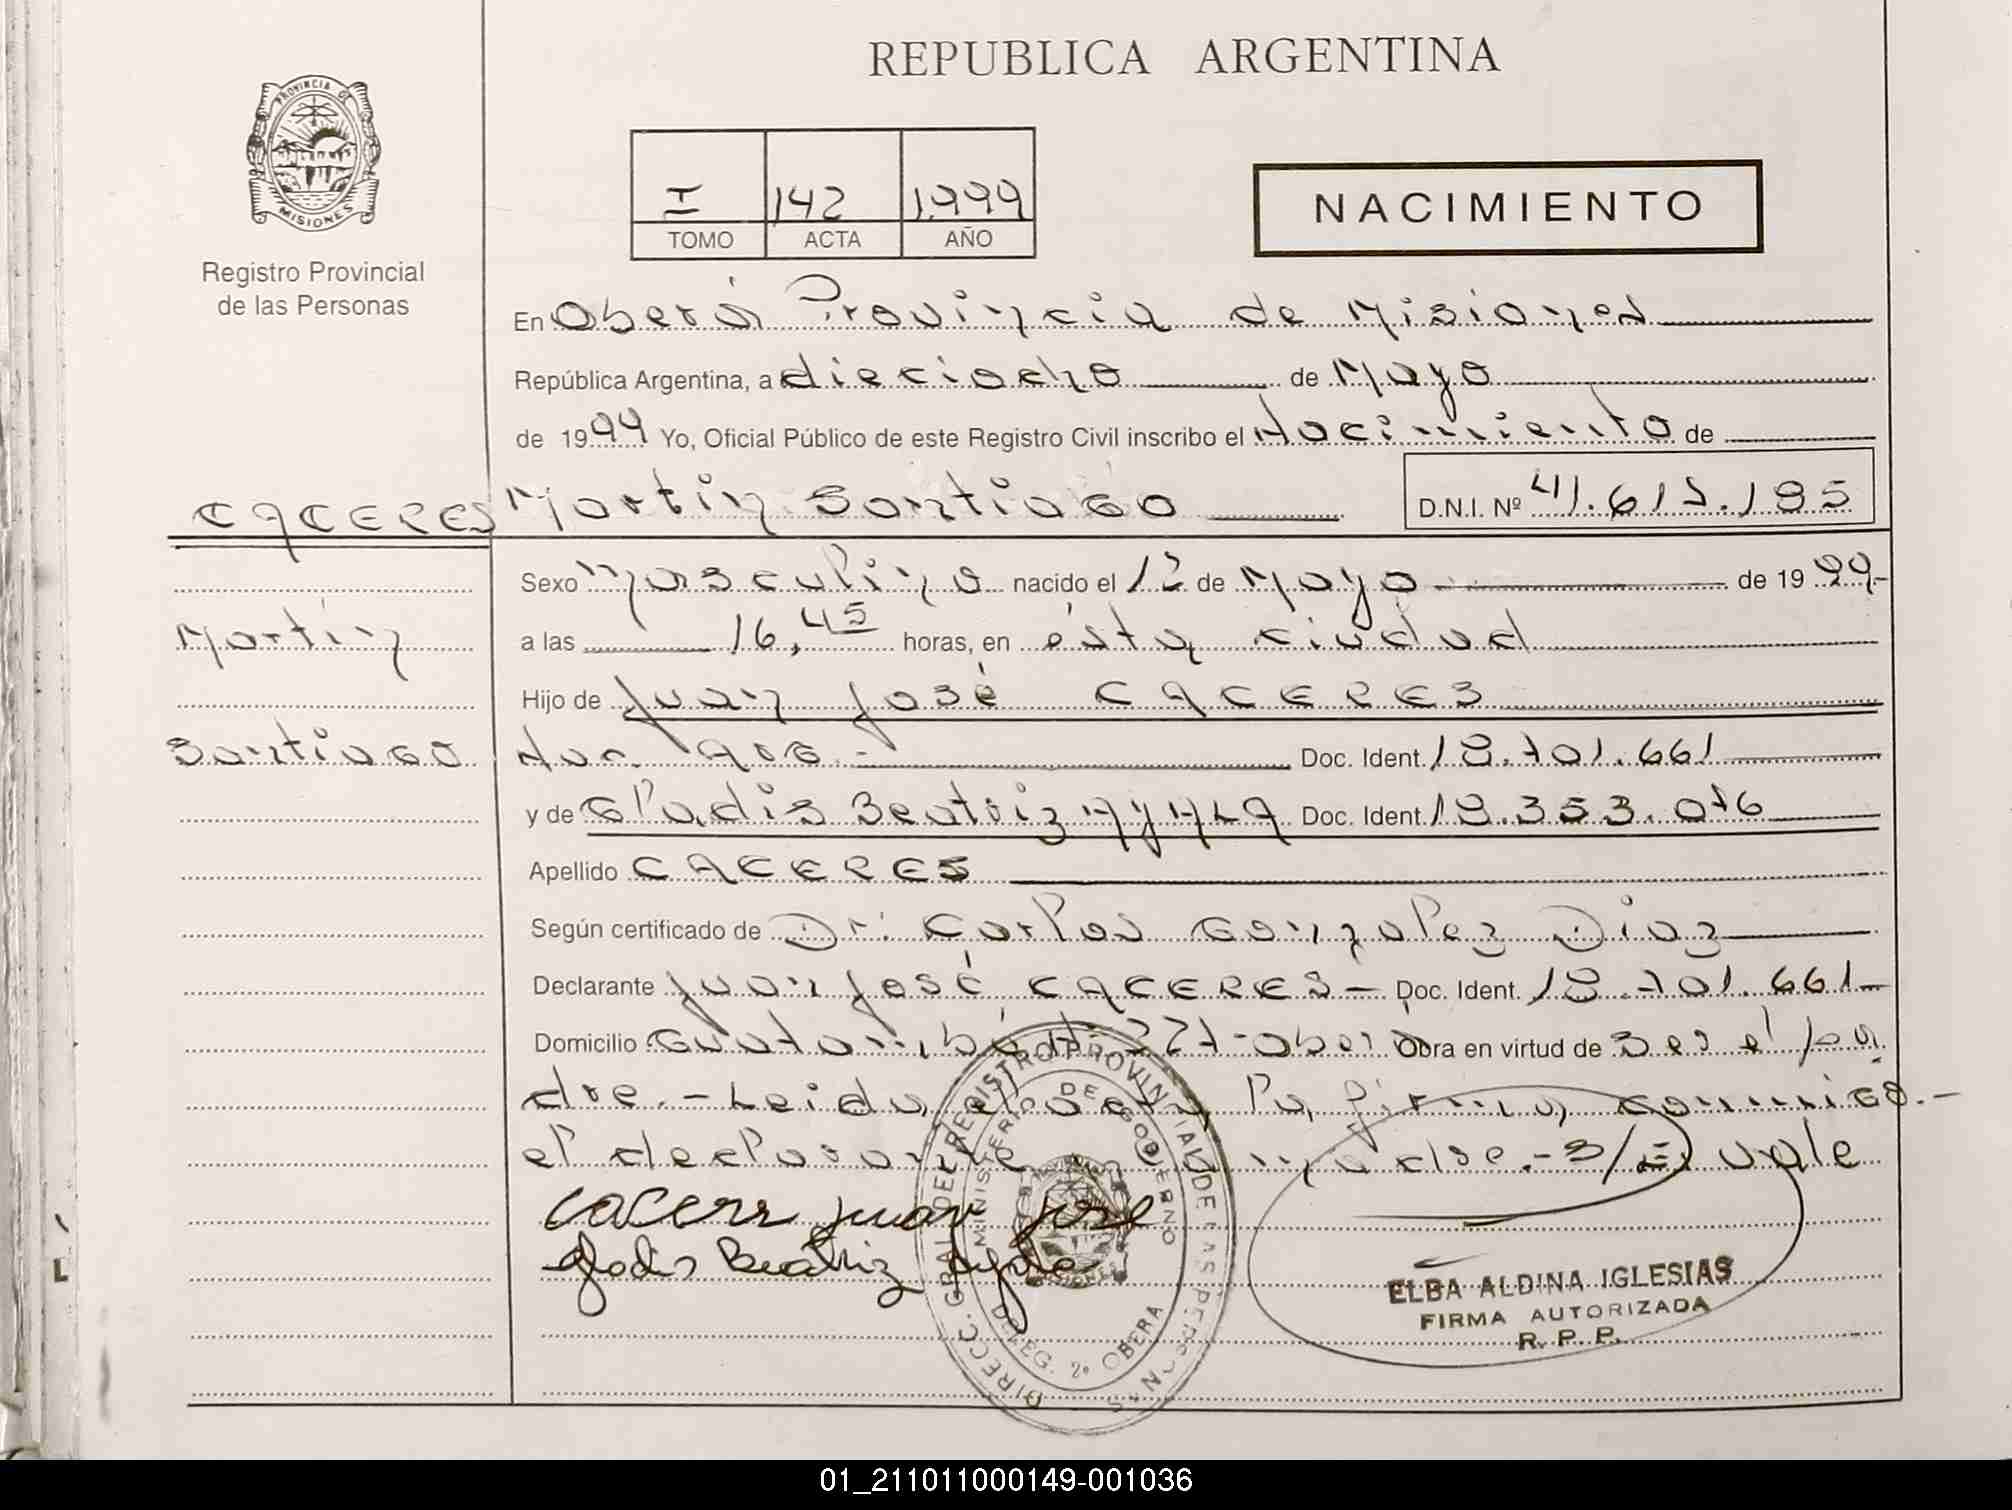 REPUBLICA ARGENTINA
PROVINCIA DE
MISIONES
Registro Provincial
de las Personas
I 142 1.999
TOMO ACTA AÑO
NACIMIENTO
En Oberá Provincia de Misiones
República Argentina, a dieciocho de Mayo
de 1999 Yo, Oficial Público de este Registro Civil inscribo el Nacimiento de
CACERES Martin Santiago D.N.I. Nº
Sexo Masculino nacido el 12 de Mayo de 1999-
Martin
a las 16,45 horas, en ésta ciudad
Hijo de Juan José CACERES
Santiago
Nac. Arg.- Doc. Ident. 18.701.661
y de Gladis Beatriz AYALA Doc. Ident. 18.353.076
Apellido CACERES
Según certificado de Dr. Carlos Gonzalez Diaz
Declarante Juan José CACERES- Doc. Ident. 18.701.661-
Domicilio Oberá Obra en virtud de ser el pa
dre.- Leida el acta la firma conmigo.-
el declarante y la madre.- S/E vale
Caceres Juan Jose
Gladis Beatriz Ayala
DIRECC. GRAL DEL REGISTRO PROVINCIAL DE LAS PERSONAS
MINISTERIO DE GOBIERNO
DELEG. 2º OBERA
ELBA ALDINA IGLESIAS
FIRMA AUTORIZADA
R. P. P.
01_211011000149-001036